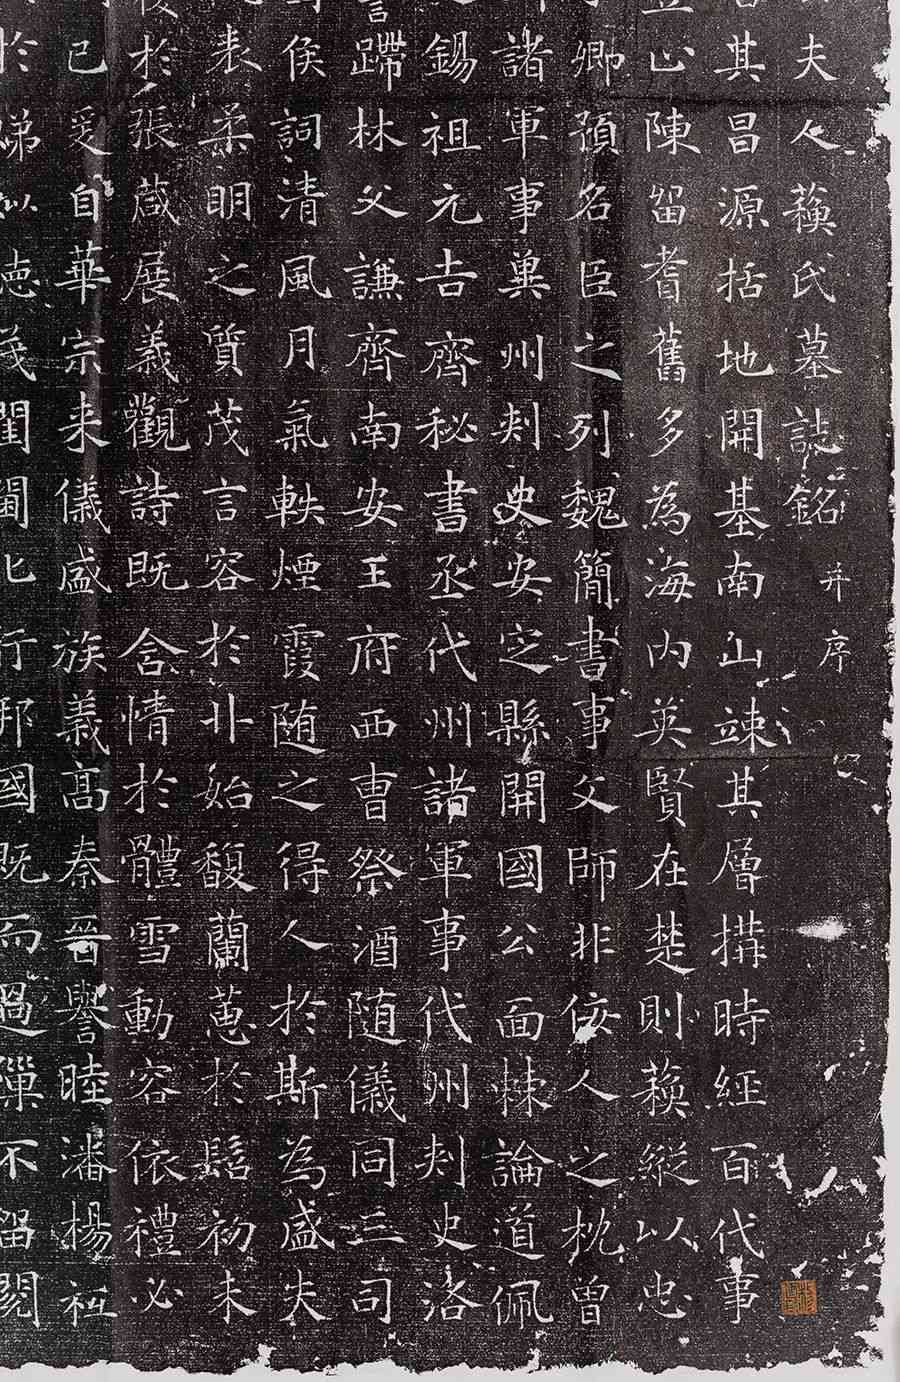 夫人蘓氏墓誌銘并序
其昌源括地開基南山竦其層搆時經百代事
陳留耆舊多為海内英賢在楚則蘓縱以忠
卿預名臣之列魏簡書事文師非佞人之枕曾
諸軍事巢州刾史安定縣開國公面棘論道佩
錫祖元吉齊秘書丞代州諸軍事代州刾史洛
蹛林父謙齊南安王府西曹祭酒随儀同三司
侯詞清風月氣軼煙霞随之得人於斯為盛夫
表柔明之質茂言容於丱始馥蘭蕙於髫初未
於張葴展義觀詩既含情於體雪動容依禮必
已爰自華宗来儀盛族義高秦晉譽睦潘楊祉
於娣姒德茂閨閫化行邦國既而過隟不留閱